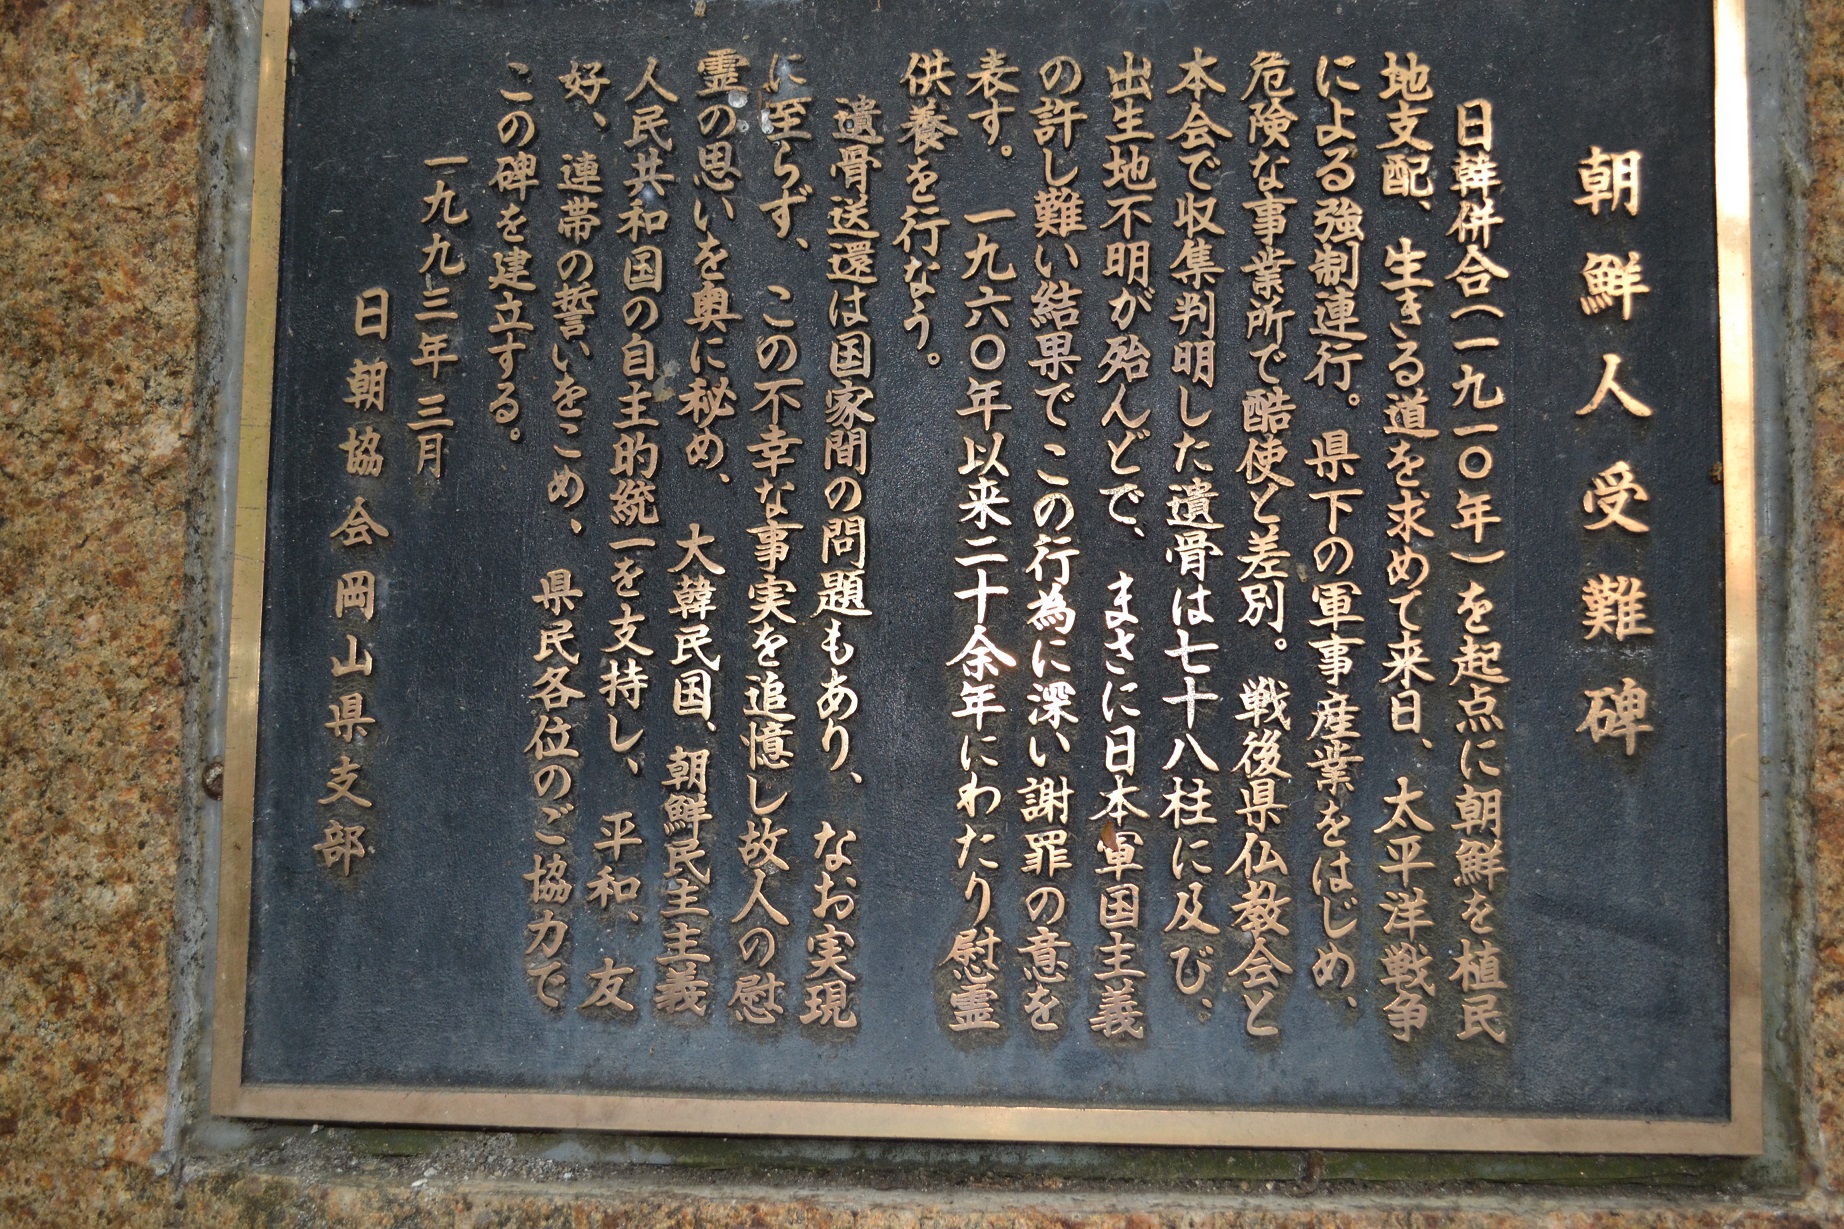 朝鮮人受難碑
日韓併合(一九一〇年)を起点に朝鮮を植民
地支配、生きる道を求めて来日、太平洋戦争
による強制連行。県下の軍事産業をはじめ、
危険な事業所で酷使と差別。戦後県仏教会と
本会で収集判明した遺骨は七十八柱に及び、
出生地不明が殆んどで、まさに日本軍国主義
の許し難い結果でこの行為に深い謝罪の意を
表す。一九六〇年以来二十余年にわたり慰霊
供養を行なう。
遺骨送還は国家間の問題もあり、なお実現
に至らず、この不幸な事実を追憶し故人の慰
霊の思いを奥に秘め、大韓民国、朝鮮民主主義
人民共和国の自主的統一を支持し、平和、友
好、連帯の誓いをこめ、県民各位のご協力で
この碑を建立する。
一九九三年三月
日朝協会岡山県支部